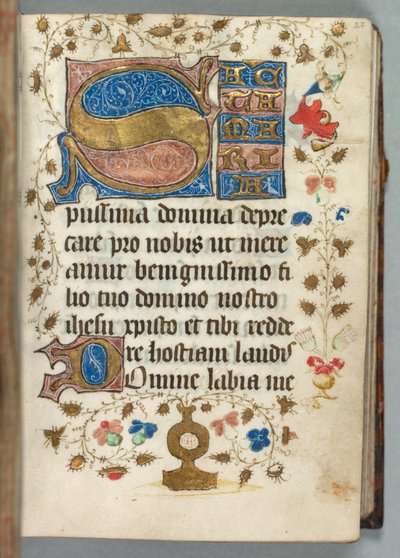 SACTA MARIA
piissima domina depre
care pro nobis ut mere
amur benignissimo fi
lio tuo domino nostro
ihesu xpisto et tibi redde
re hostiam laudis
Domine labia me